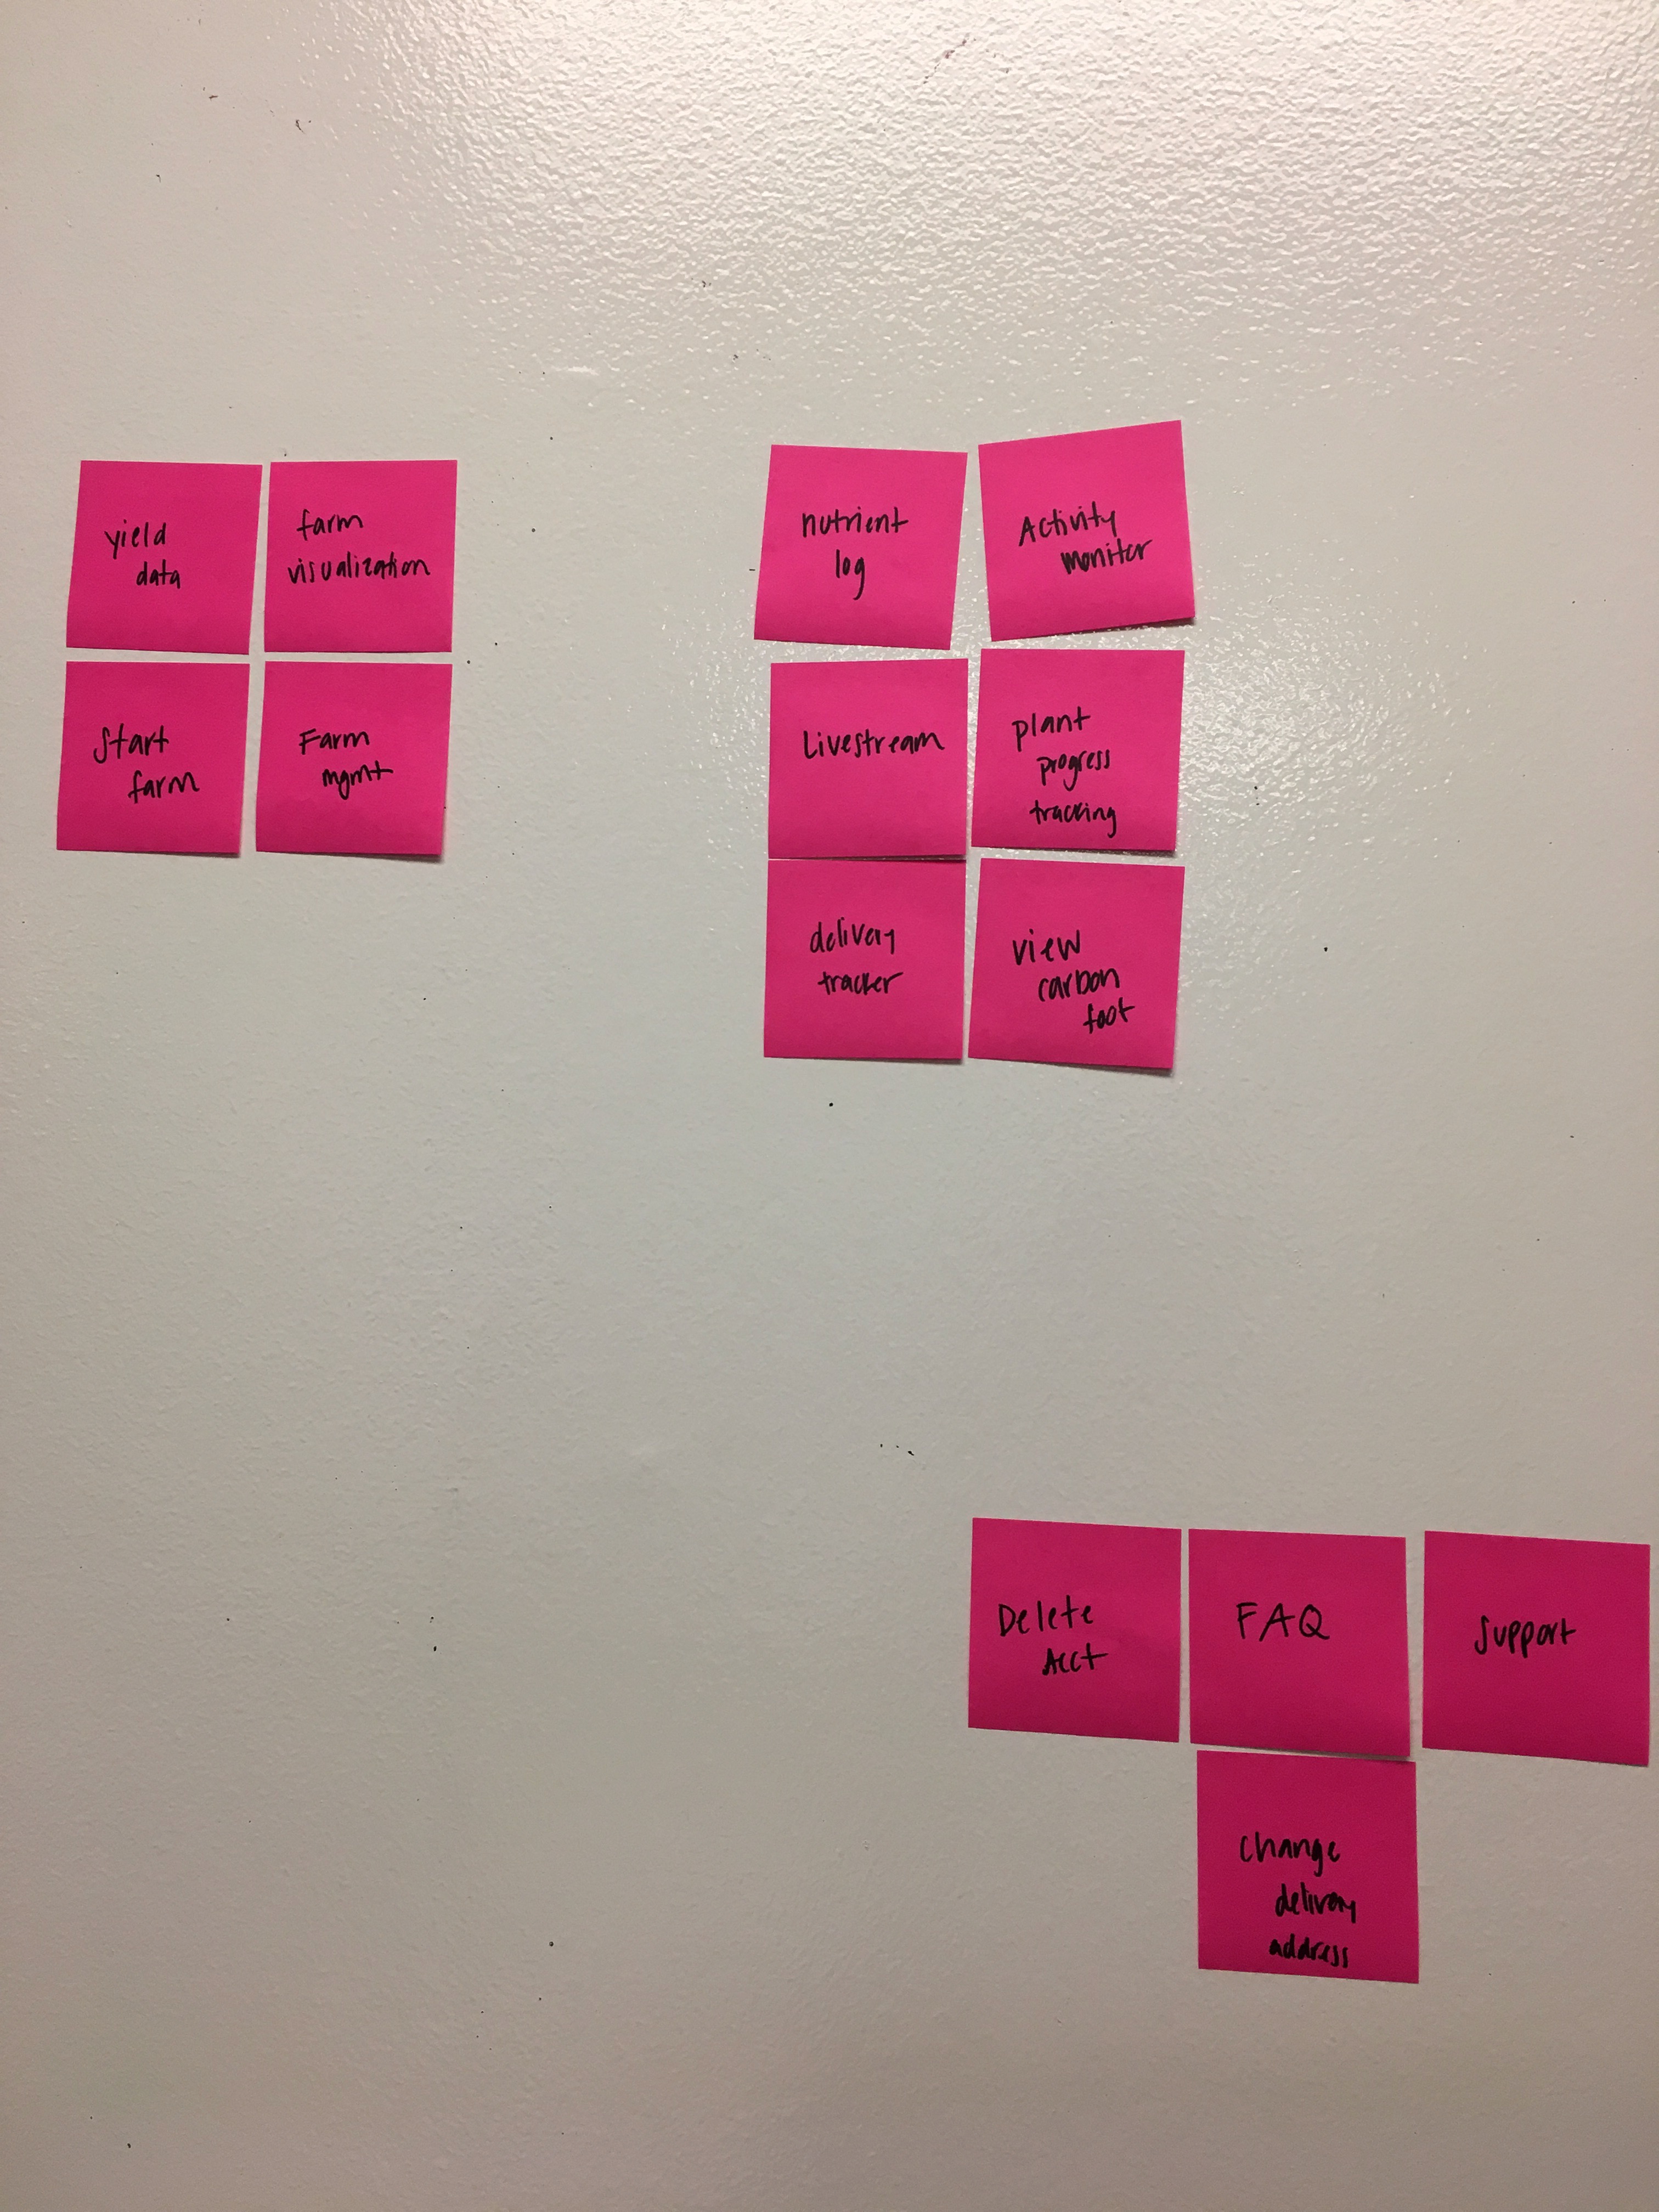 yield
data
farm
visualization
Start
farm
Farm
mgmt
nutrient
log
Activity
monitor
Livestream
plant
progress
tracking
delivery
tracker
view
carbon
foot
Delete
Acct
FAQ
Support
change
delivery
address